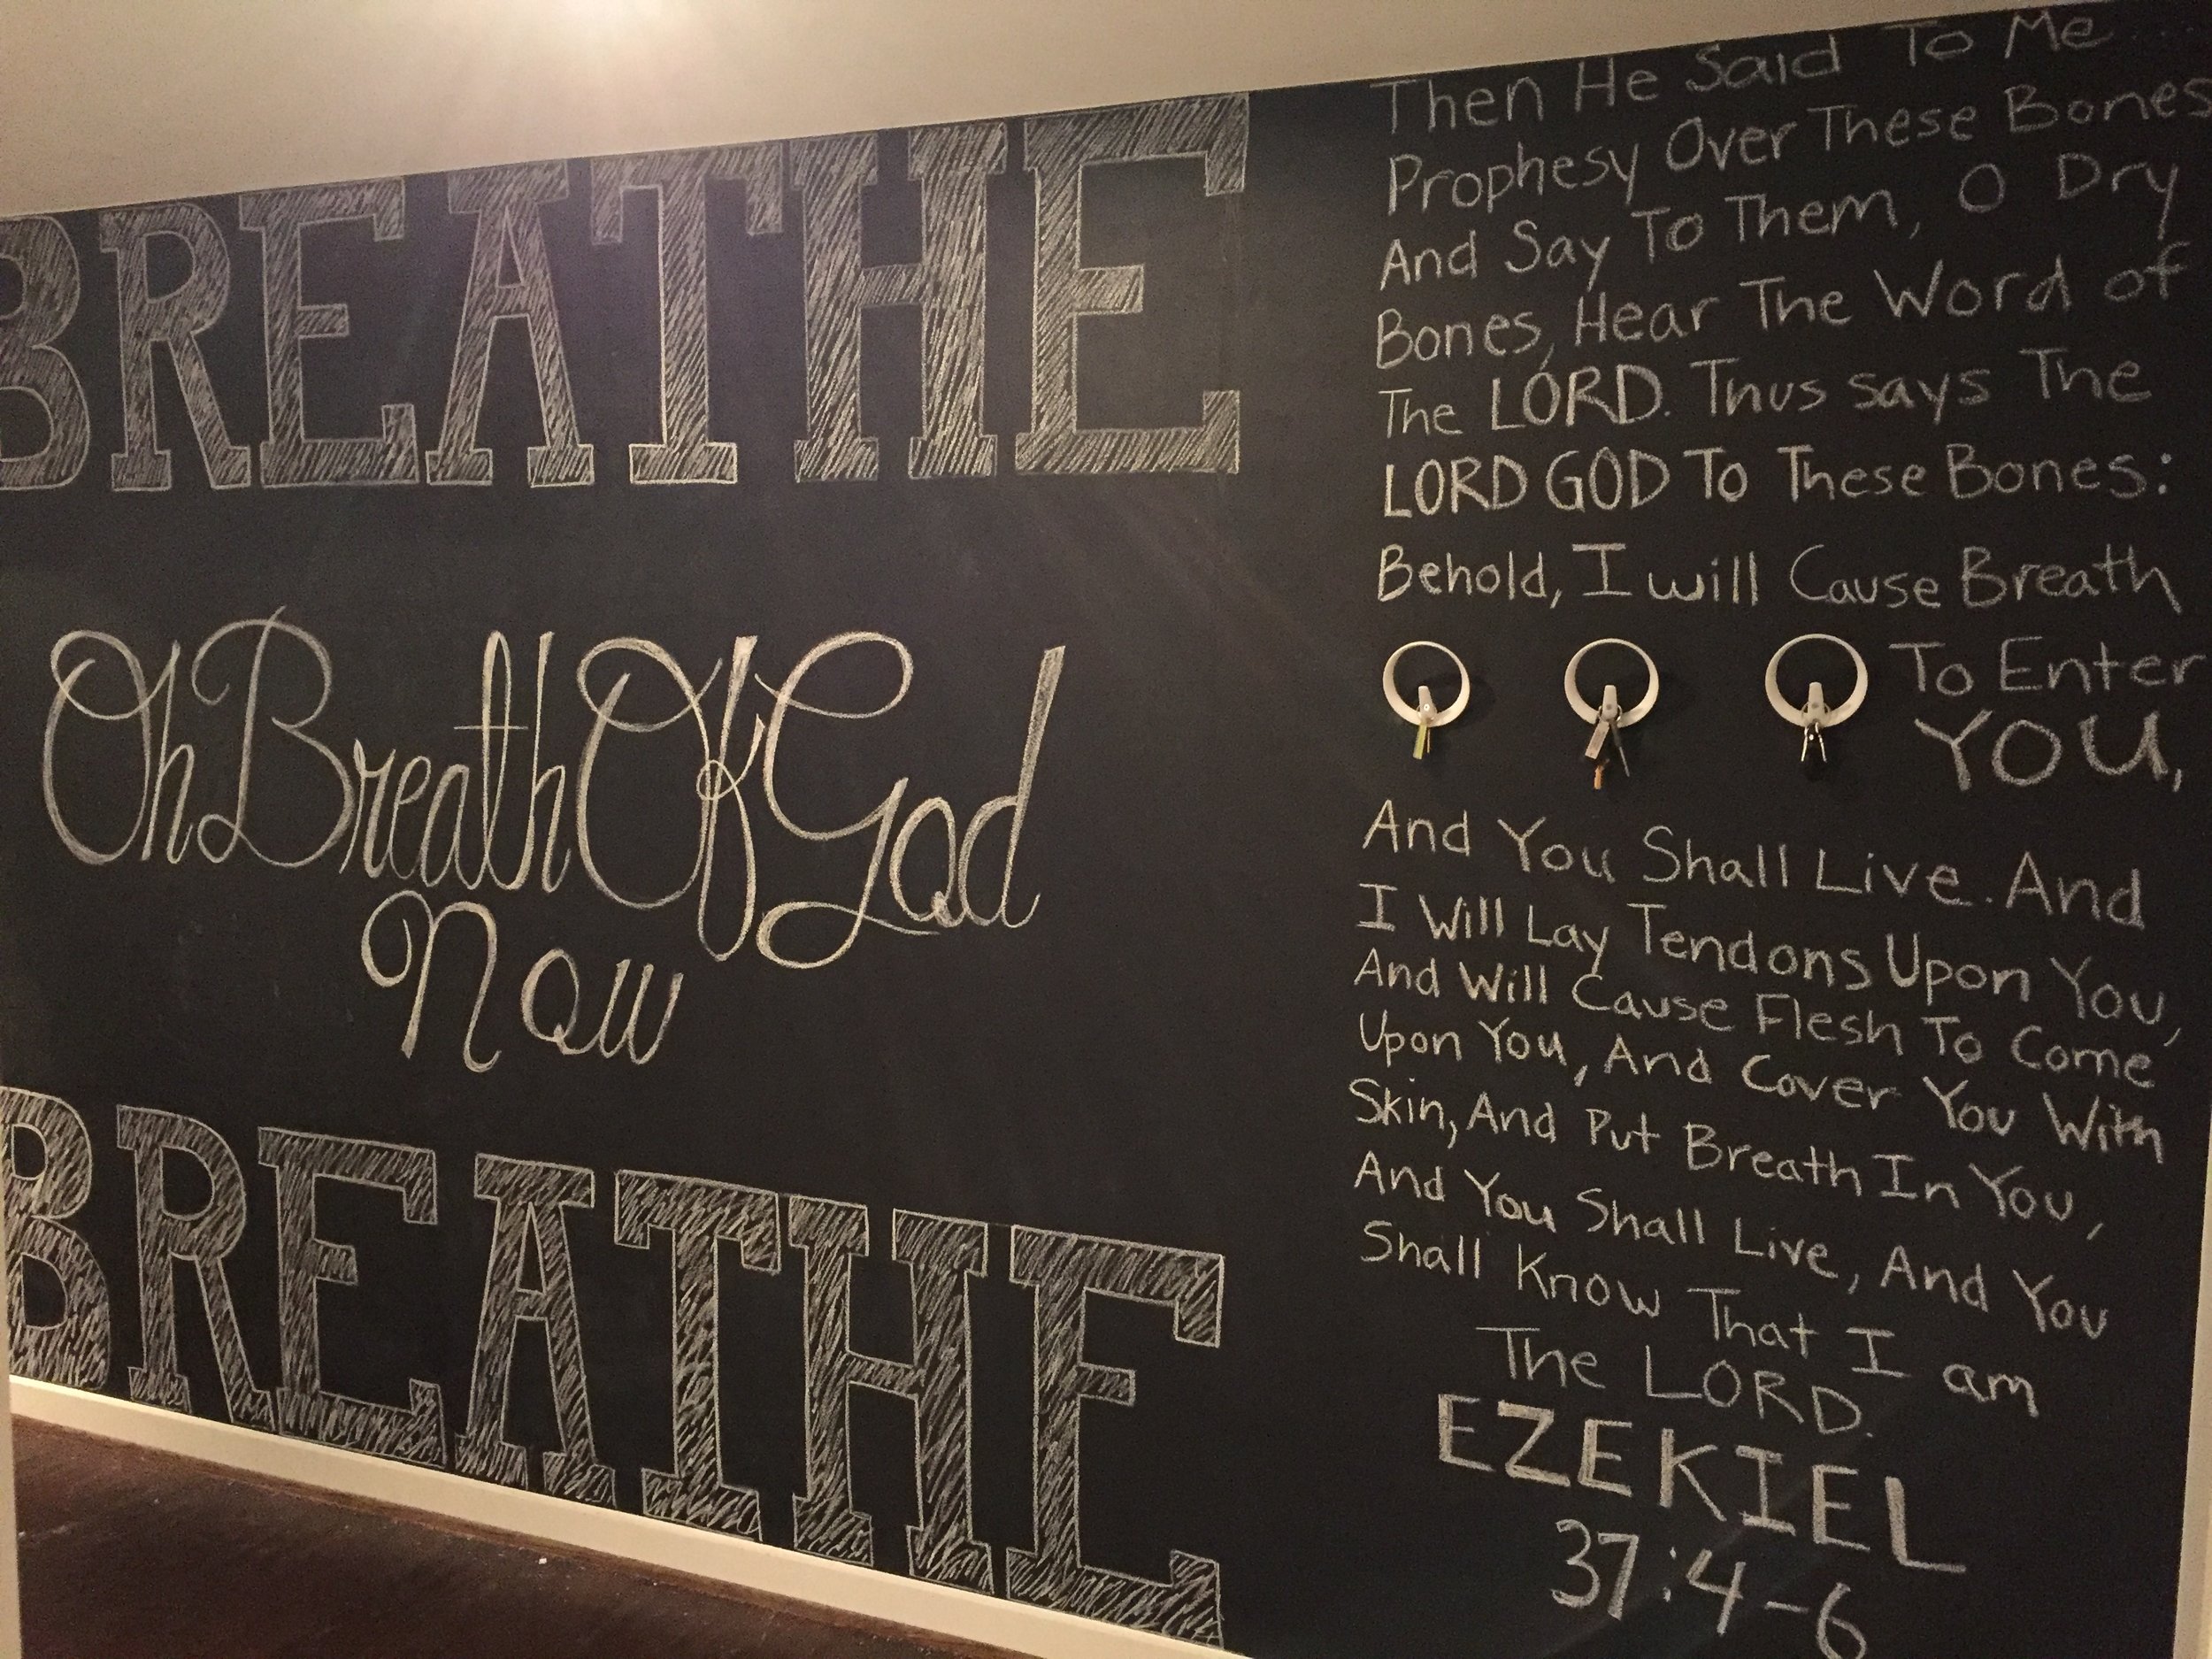 BREATHE
Oh Breath Of God
Now
BREATHE
Then He Said To Me...
Prophesy Over These Bones
And Say To Them, O Dry
Bones, Hear The Word of
The LORD. Thus says The
LORD GOD To These Bones:
Behold, I will Cause Breath
To Enter
YOU,
And You Shall Live. And
I Will Lay Tendons Upon You,
And Will Cause Flesh To Come
Upon You, And Cover You With
Skin, And Put Breath In You,
And You Shall Live, And You
Shall Know That I am
The LORD.
EZEKIEL
37:4-6